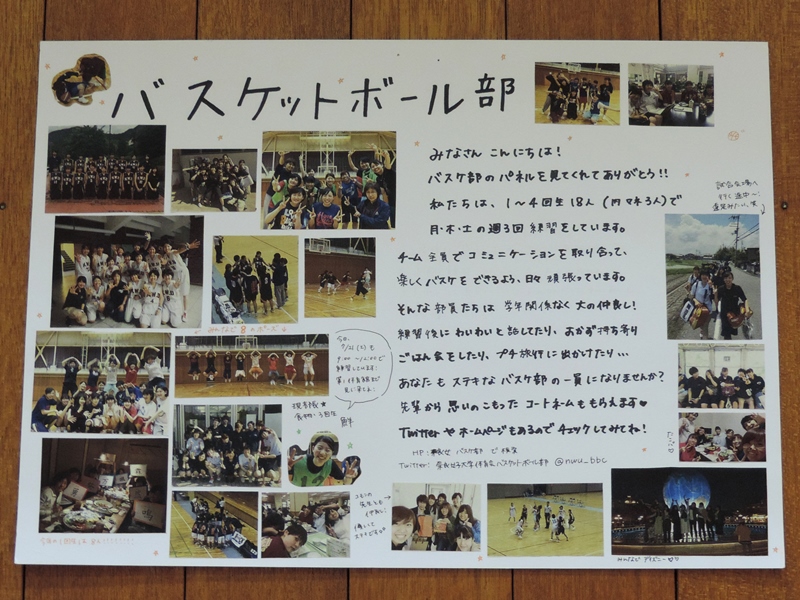 バスケットボール部
みなさん こんにちは!
バスケ部の パネルを 見てくれて ありがとう!!
私たちは、1〜4回生 18人(内マネ3人)で
月・木・土の週3回 練習をしています。
チーム全員でコミュニケーションを取り合って、
楽しくバスケをできるよう、日々頑張っています。
そんな部員たちは 学年関係なく 大の仲良し!
練習後にわいわいと話したり、おかず持ち寄り
ごはん会をしたり、プチ旅行に出かけたり…
あなたも ステキな バスケ部の一員になりませんか?
先輩から 思いのこもった コートネームももらえます♥
Twitterやホームページもあるのでチェックしてみてね!
HP: バスケ部 で検索
Twitter: 奈良女子大学体育会バスケットボール部 @nwu_bbc
試合会場へ
行く途中〜!
みんなで 8のポーズ
今日、
9:00〜12:00で
練習しています!
第1体育館まで
見に来てね!
現部長★
食物・3回生
みんなで